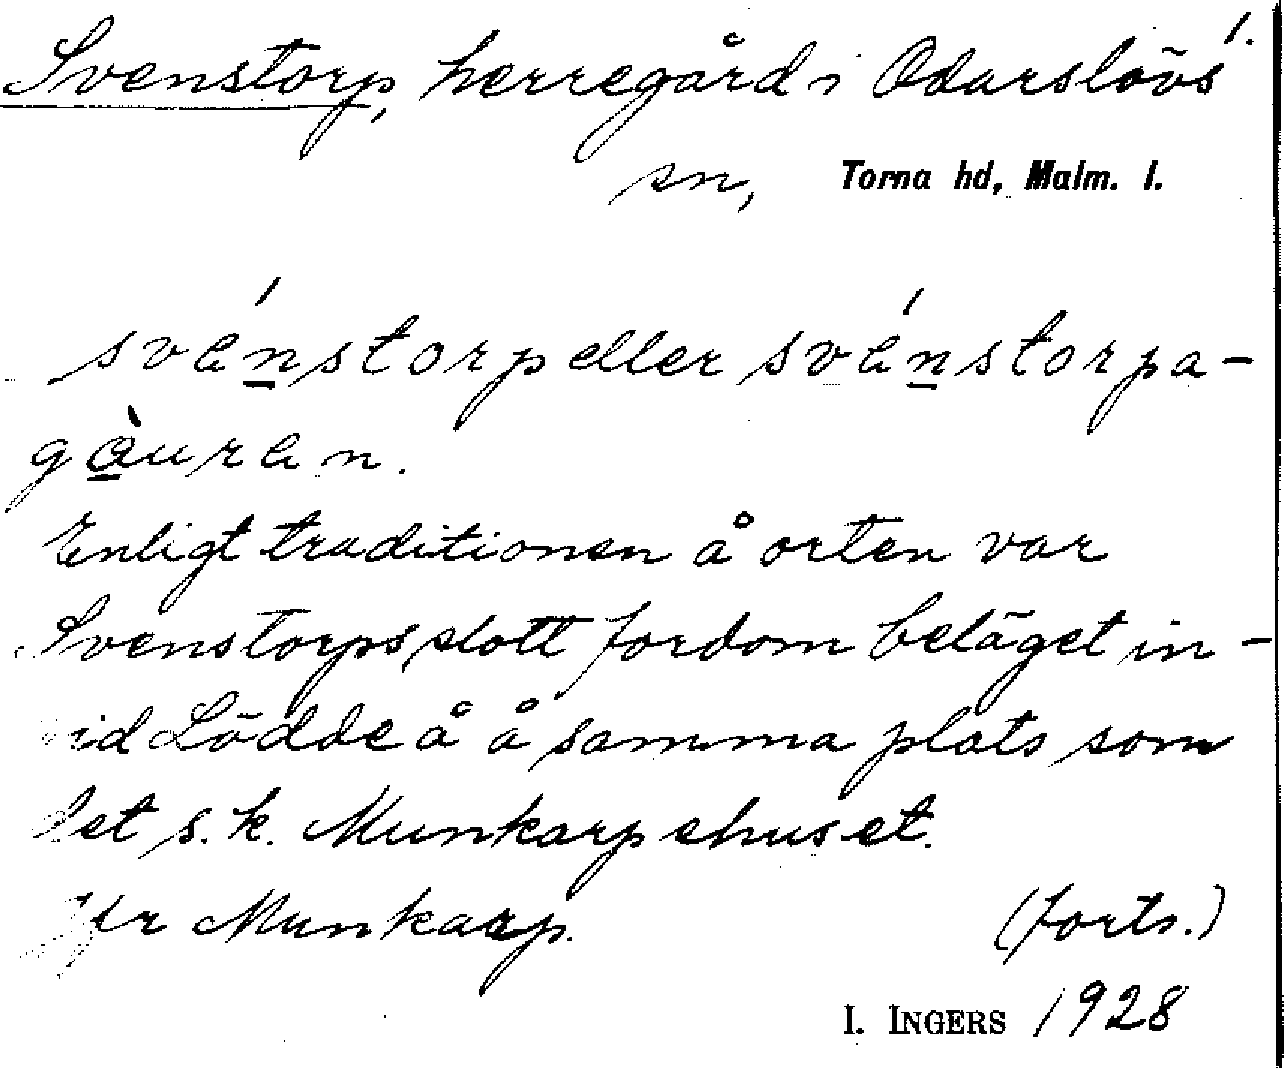 1.
Svenstorp, herregård i Odarslövs
sn, Torna hd, Malm. l.
svénstorp eller svénstorpa-
gàuren.
Enligt traditionen å orten var
Svenstorps slott fordom beläget in-
vid Lödde å å samma plats som
det s.k. Munkarpehuset.
Jfr Munkarp. (forts.)
I. INGERS 1928